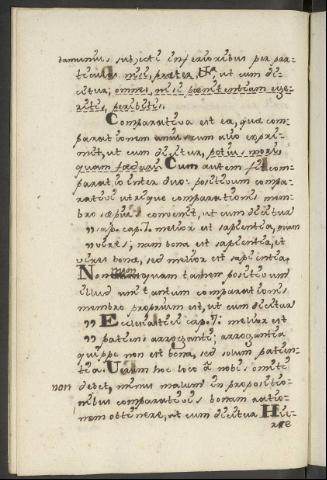 tamunus, subjecti inferioribus per par-
ticulas nisi, præter, &ª, ut cum di-
citur; omnes, nisi pænitentiam ege-
ritis, peribitis.
Comparativa est ea, quæ com-
parationem aliquorum expri-
mit, ut cum dicitur, potius mori
quam fædari. Cum autem fit com-
paratio inter duo: positivum compa-
rativi utrique comparationis mem-
bro sæpius convenit, ut cum dicitur
,, sap. cap. melior est sapientia, quam
,, vires; nam bona est sapientia, et
vires bonæ, sed melior est sapientia.
Nonnumquam tamen positivum
illud uni tantum comparationis
membro proprium est, ut cum dicitur
,, Ecclesiastici cap. 7: melior est
,, patiens arrogante; arrogantia
quippe non est bona, sed solum patien-
tia. Unum hoc loco a nobis omitti
non debet, minus malum in propositio-
nibus comparativis bonam ratio-
nem obtinere, ut cum dicitur Hie-